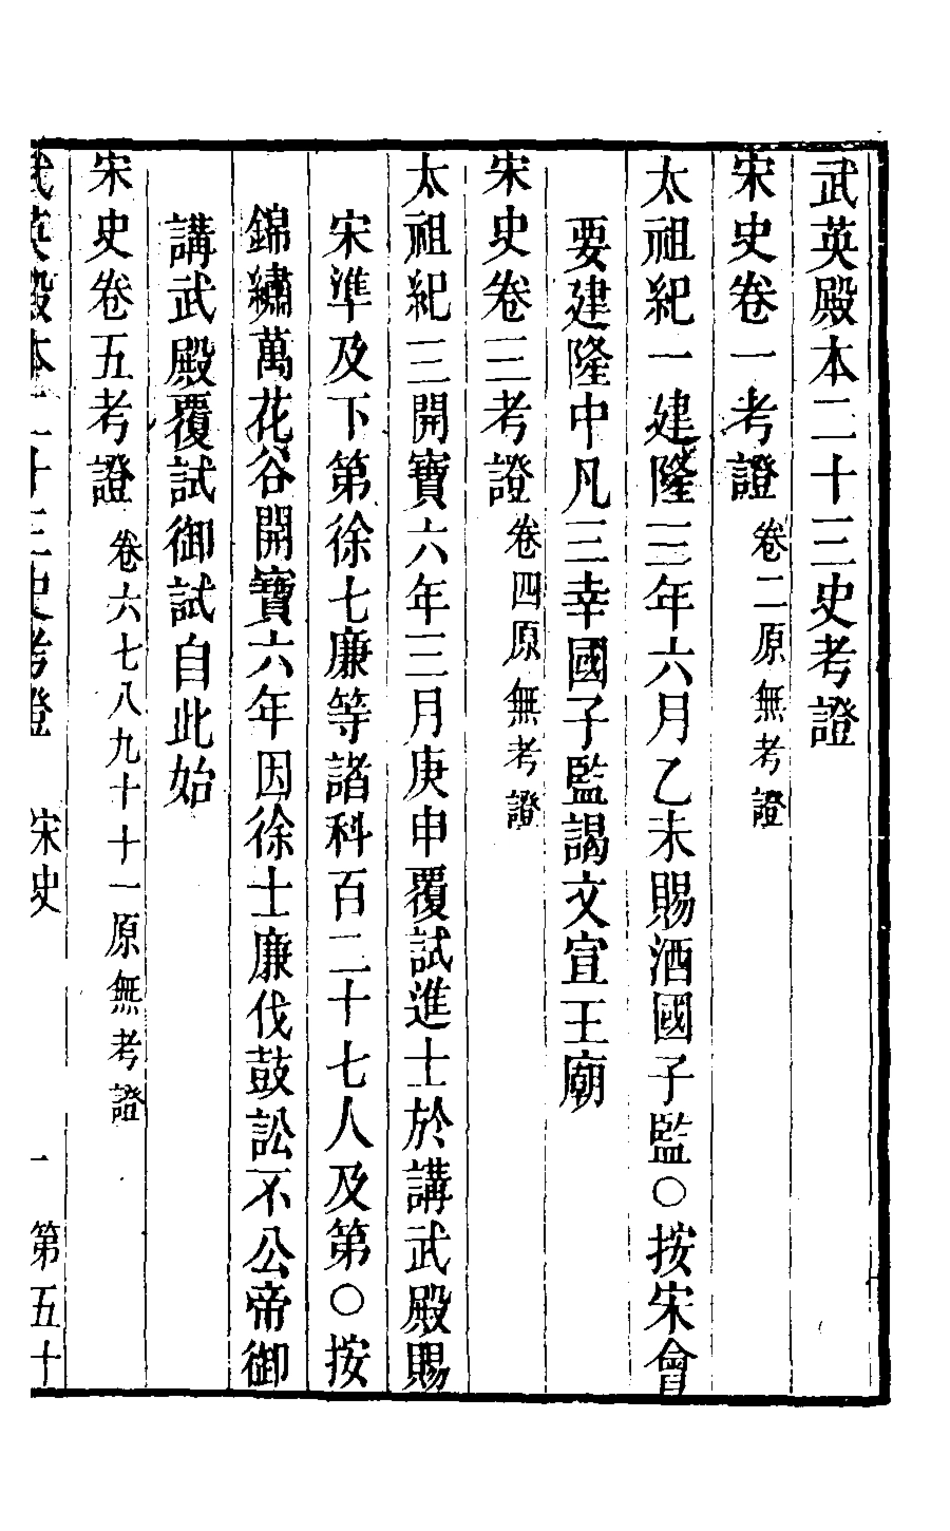 武英殿本二十三史考證
宋史卷一考證 卷二原無考證
太祖紀一建隆三年六月乙未賜酒國子監○按宋會
要建隆中凡三幸國子監謁文宣王廟
宋史卷三考證 卷四原無考證
太祖紀三開寶六年三月庚申覆試進士於講武殿賜
宋準及下第徐七廉等諸科百二十七人及第○按
錦繡萬花谷開寶六年因徐士廉伐鼓訟不公帝御
講武殿覆試御試自此始
宋史卷五考證 卷六七八九十十一原無考證
武英殿本二十三史考證 宋史 一 第五十